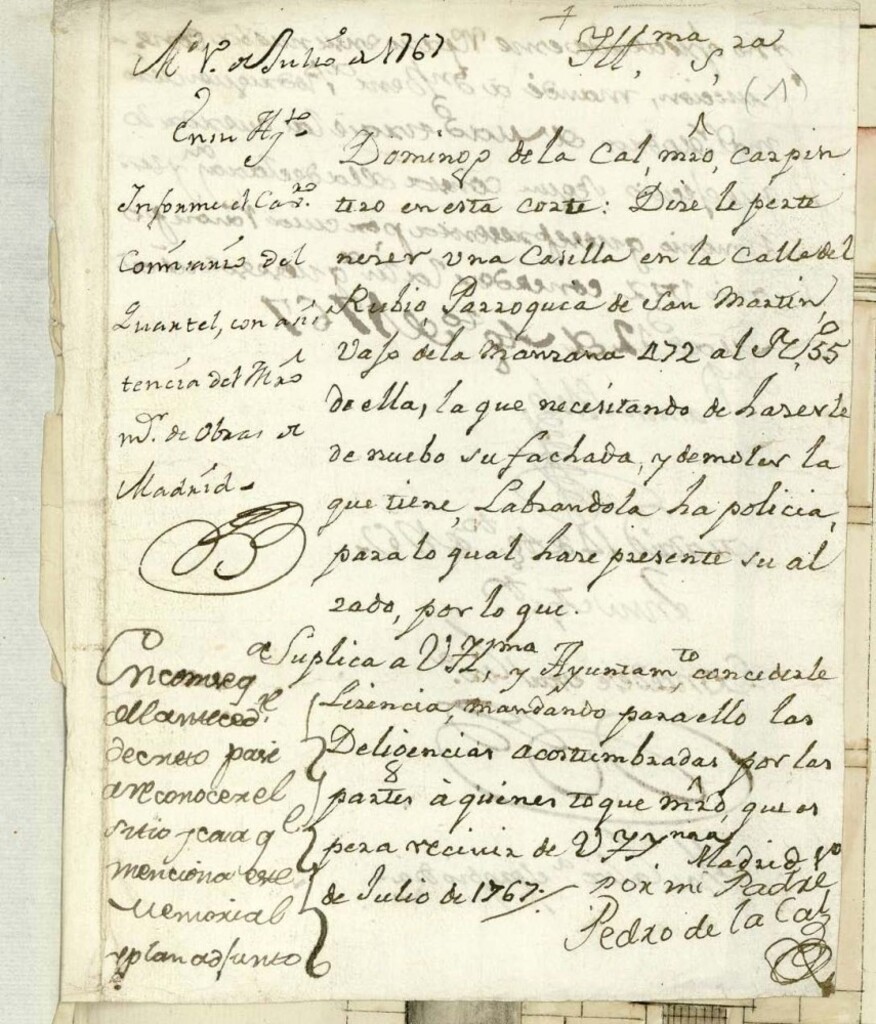 M.d 1.o de Julio de 1767
Ill,ma S,ra
(1)
En su Ay.to
Informe el Cav.ro
Comisario del
Quartel, con asis
tencia del Mro
m.or de Obras de
Madrid.
Domingo de la Cal, mro, carpin
tero en esta corte: Dize le perte
nezer una Casilla en la Calle del
Rubio, Parroquia de San Martin,
Vajo de la Manzana 472 al N,o 55
de ella, la que necesitando de hazerle
de nuebo su fachada, y demoler la
que tiene, Labrandola ha policia,
para lo qual haze presente su al
zado, por lo que.
Suplica a V Il,ma, y Ayuntam,to concederle
Lizencia, mandando para ello las
Deligencias acostumbradas por las
partes à quienes toque mrd, que es
pera recivir de V Il,ma Madrid 1.o
de Julio de 1767.
por mi Padre
Pedro de la Cal
En conseq.a
del anteced.te
decreto pase
a reconocer el
sitio y casa q.e
menciona este
Memorial
y plan adjunto